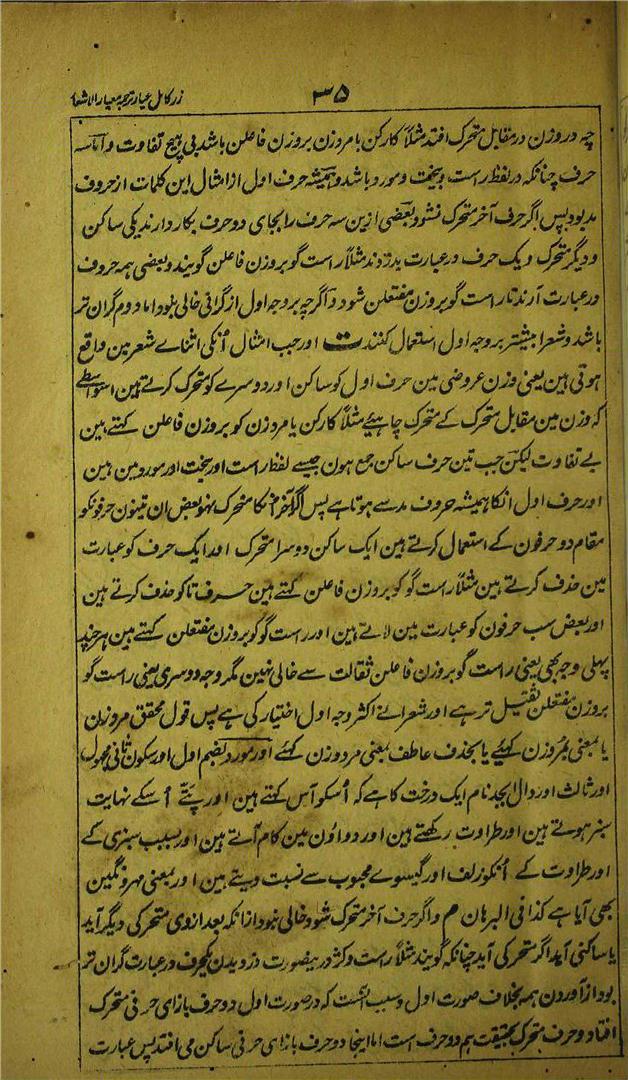 ۳۵
زر کامل عیار ترجمہ معیار الاشعار
چہ در وزن در مقابل متحرک افتد مثلاً کارکن یا مرد زن بروزن فاعلن باشد بی ہیچ تفاوت و اما سہ
حرف چنانکہ در لفظ راست و بیخت و مورد باشد و ہمیشہ حرف اول از امثال این کلمات از حروف
مد بود پس اگر حرف آخر متحرک نشود بعضی ازین سہ حرف را بجای دو حرف بکار دارند یکی ساکن
و دیگر متحرک و یک حرف در عبارت بدزدند مثلاً راست گو بروزن فاعلن گویند و بعضی ہمہ حروف
در عبارت آرند تا راست گو بروزن مفتعلن شود و اگرچہ بروجہ اول از گرانی خالی نبود اما دوم گران تر
باشد و شعرا بیشتر بروجہ اول استعمال کنند ت اور جب امثال اُنکی اثناے شعر مین واقع
ہوتی ہین یعنی وزن عروضی مین حرف اول کو ساکن اور دوسرے کو متحرک کرتے ہین اسواسطے
کہ وزن مین مقابل متحرک کے متحرک چاہیے مثلاً کارکن یا مرد زن کو بروزن فاعلن کہتے ہین
بے تفاوت لیکن جب تین حرف ساکن جمع ہون جیسے لفظ راست اور بیخت اور مورد مین ہین
اور حرف اول انکا ہمیشہ حروف مد سے ہوتا ہے پس اگر آخر انکا متحرک نہو بعض ان تینون حرفونکو
مقام دو حرفون کے استعمال کرتے ہین ایک ساکن دوسرا متحرک اور ایک حرف کو عبارت
مین حذف کرتے ہین مثلاً راست گو کو بروزن فاعلن کہتے ہین حرف تا کو حذف کرتے ہین
اور بعض سب حرفون کو عبارت مین لاتے ہین اور راست گو کو بروزن مفتعلن کہتے ہین ہر چند
پہلی وجہ بھی یعنی راست گو بروزن فاعلن ثقالت سے خالی نہین مگر وجہ دوسری یعنی راست گو
بروزن مفتعلن ثقیل تر ہے اور شعرا نے اکثر وجہ اول اختیار کی ہے پس قول محقق مرد زن
یا بمعنی مُرد زن کہئے یا بحذف عاطف بمعنی مرد و زن کہئے اور مورد بضم اول اور سکون ثانی مجہول
اور ثالث اور دال ابجد نام ایک درخت کا ہے کہ اُسکو آس کہتے ہین اور پتّے اُسکے نہایت
سبز ہوتے ہین اور طراوت رکھتے ہین اور دواؤن مین کام آتے ہین اور بسبب سبزی کے
اور طراوت کے اُنکو زلف اور گیسوے محبوب سے نسبت دیتے ہین اور بمعنی مہر و نگین
بھی آیا ہے کذا فی البرہان م و اگر حرف آخر متحرک شود خالی نبود از انکہ بعد از وی متحرکی دیگر آید
یا ساکنی آید اگر متحرکی آید چنانکہ گویند مثلاً راست و کژ در ینصورت دزدیدن یکحرف در عبارت گران تر
بود از آوردن ہمہ بخلاف صورت اول و سبب آنست کہ در صورت اول دو حرف بازای حرفی متحرک
افتاد و حرف متحرک بحقیقت ہم دو حرف است اما اینجا دو حرف بازای حرفی ساکن می افتد پس عبارت